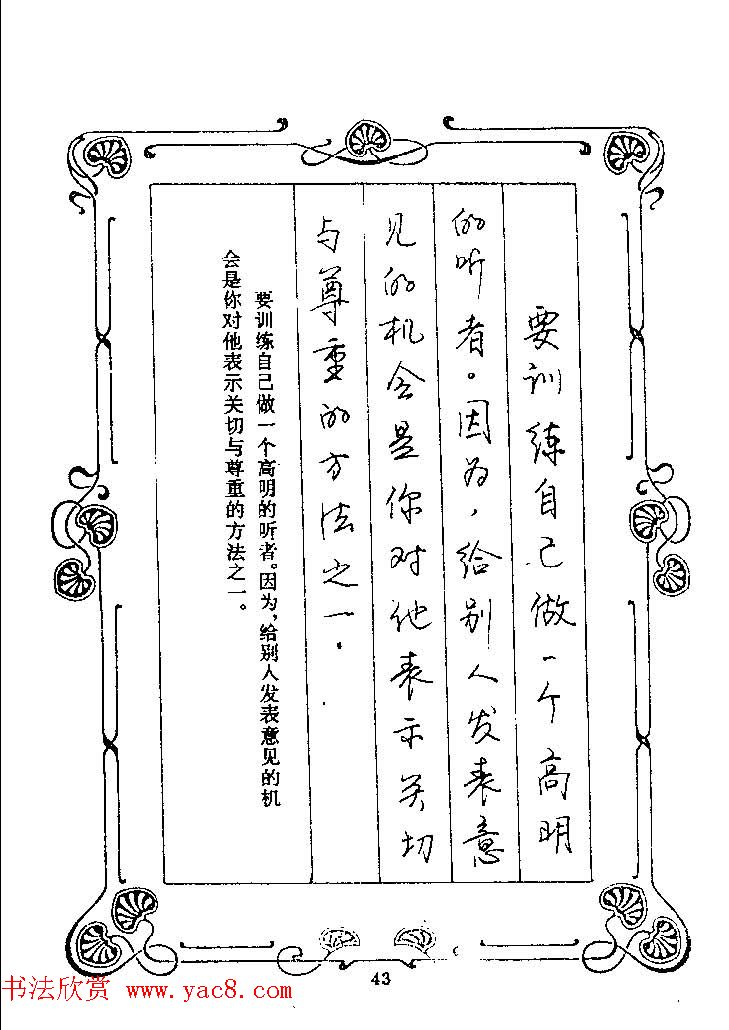 要训练自己做一个高明
的听者。因为，给别人发表意
见的机会是你对他表示关切
与尊重的方法之一。
要训练自己做一个高明的听者。因为，给别人发表意见的机
会是你对他表示关切与尊重的方法之一。
43
书法欣赏 www.yac8.com